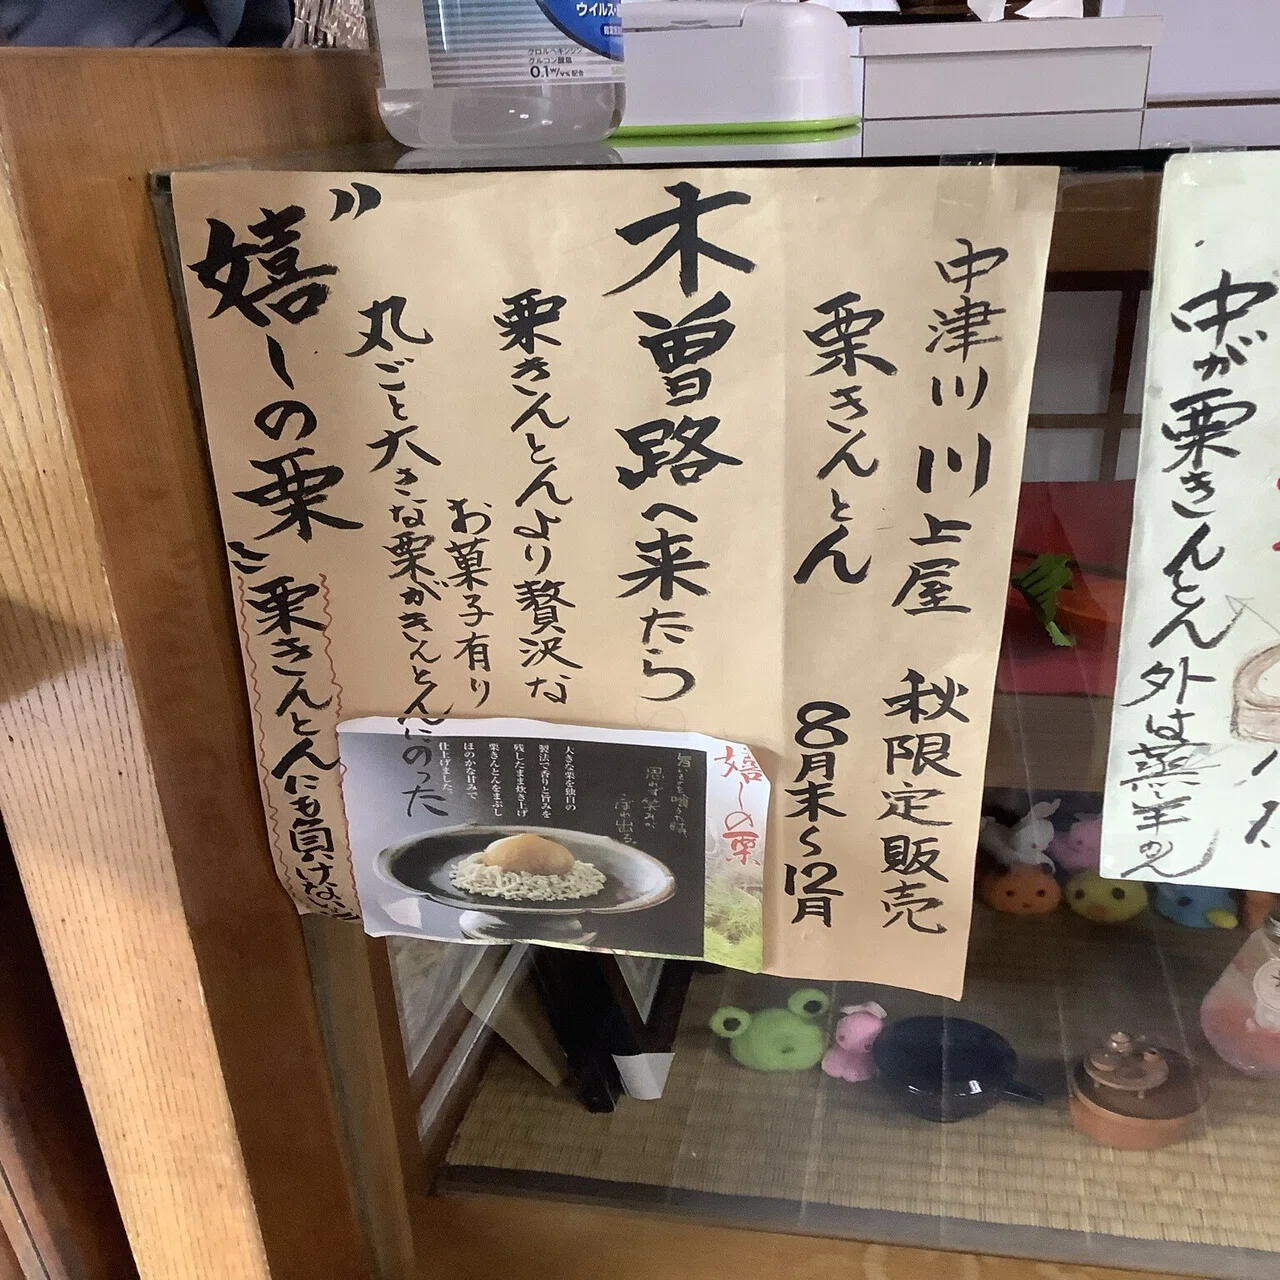 中津川川上屋 秋限定販売
栗きんとん 8月末~12月
木曽路へ来たら
栗きんとんより贅沢な
お菓子有り
丸ごと大きな栗がきんとんにのった
"嬉しの栗"
栗きんとんにも負けない
嬉しの栗
思わず笑みが
こぼれ出る。
大きな栗を独自の
製法で香りと旨みを
残したまま炊き上げ
栗きんとんをまぶし
ほのかな甘みで
仕上げました。
中が栗きんとん外は蒸羊かん
ウイルス
クロルヘキシジン
グルコン酸塩
0.1w/v%配合